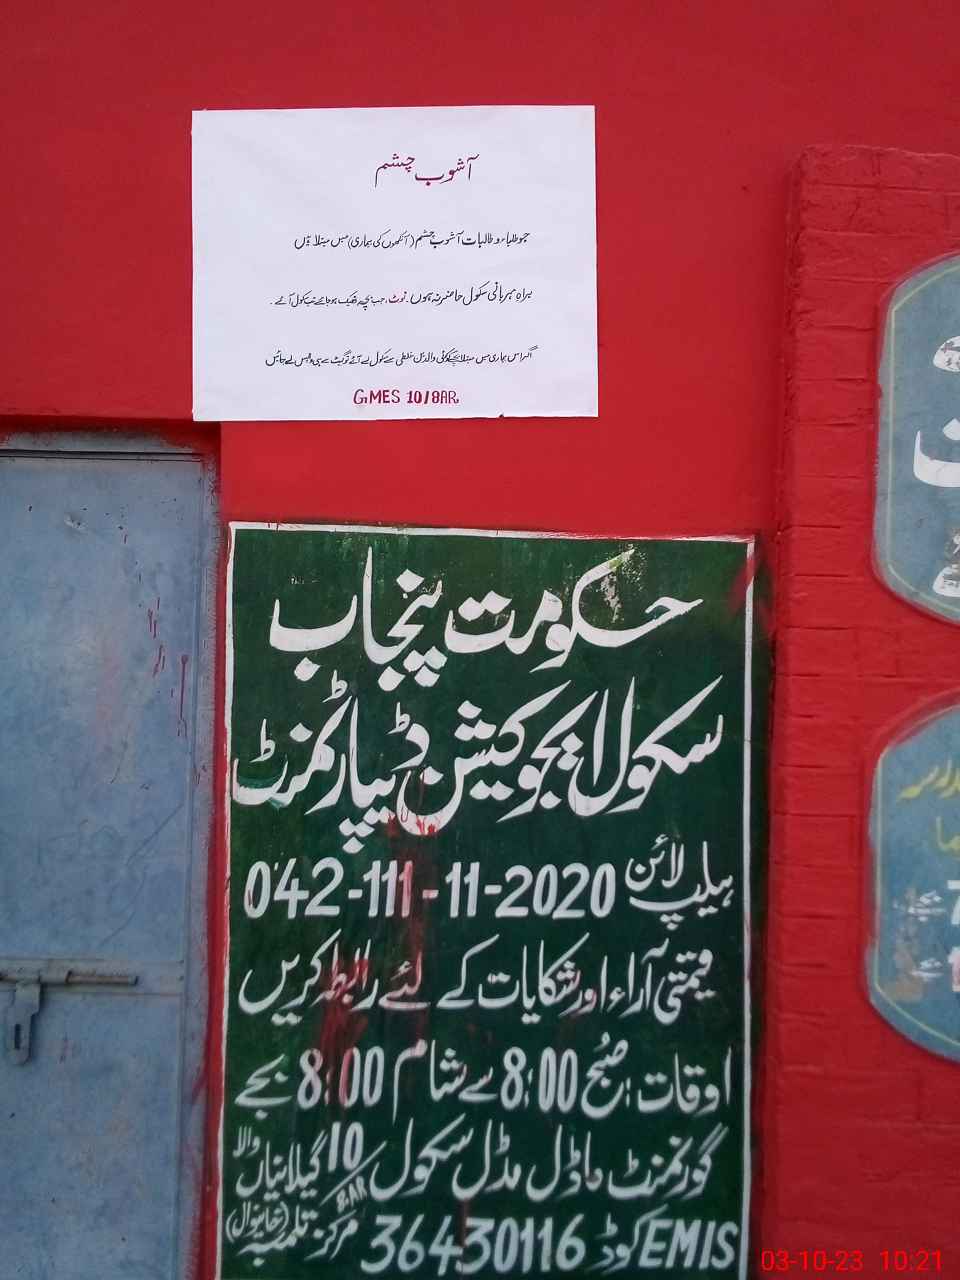 آشوب چشم
جو طلباء و طالبات آشوب چشم (آنکھوں کی بیماری) میں مبتلا ہیں
براہ مہربانی سکول حاضر نہ ہوں۔ نوٹ، جب بچہ ٹھیک ہو جائے تب سکول آئے۔
اگر اس بیماری میں مبتلا بچے کوئی والدین غلطی سے سکول لے آئے تو گیٹ سے ہی واپس لے جائیں
GMES 10/8AR
حکومت پنجاب
سکول ایجوکیشن ڈیپارٹمنٹ
ہیلپ لائن 042-111-11-2020
قیمتی آراء اور شکایات کے لئے رابطہ کریں
اوقات: صبح 8:00 سے شام 8:00 بجے
گورنمنٹ ماڈل مڈل سکول 10 8-AR گیلانیاں والا
EMIS کوڈ 36430116 مرکز تلمبہ (خانیوال)
03-10-23 10:21